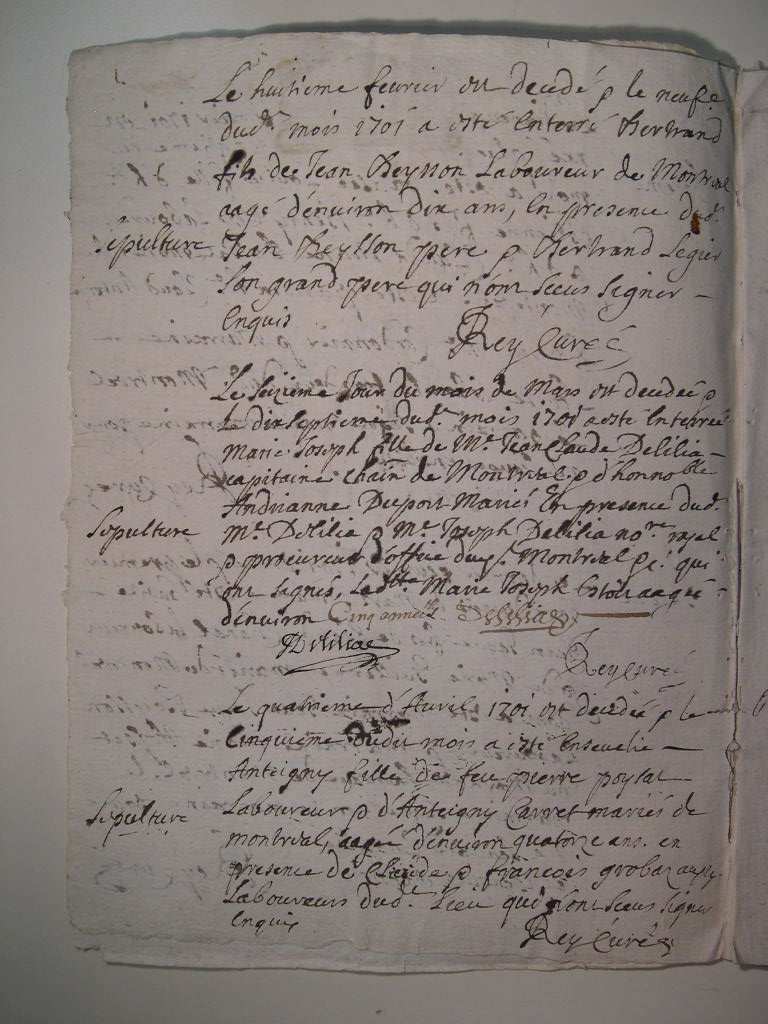 Le huitieme feurier est decedé & le neufe
dud. mois 1701 a esté Enterré Bertrand
fils de Jean Beysson Laboureur de Montreal
aagé d'enuiron dix ans, En presence dud.
Sepulture
Jean Beysson pere & Bertrand Legier
Son grand pere qui n'ont sceus signer
Enquis
Rey Curé
Le seizieme Jour du mois de Mars est decedée &
Le dixseptieme dud. mois 1701 a esté Enterrée
Marie Joseph fille de Mr. Jean Claude Delilia
capitaine chatn de Montreal & d'honnoble
Andrianne Duport Mariés En presence dud.
Sepulture
Mr. Delilia & Me. Joseph Delilia nore. royal
& procureur d'office dud. Montreal qui
ont signés, Ladte Marie Joseph Estoit aagée
d'enuiron Cinq années Delilia
Delilia
Rey curé
Le quatrieme d'Auril 1701 est decedée & le
Cinquieme dudit mois a esté Enseuelie
Anteigny fille de feu pierre poysat
Sepulture
Laboureur & d'Anteigny Carret mariés de
montreal, aagée d'enuiron quatorze ans. en
presence de Claude & francois grobaz
Laboureurs dud. Lieu qui n'ont sceus signer
Enquis
Rey Curé